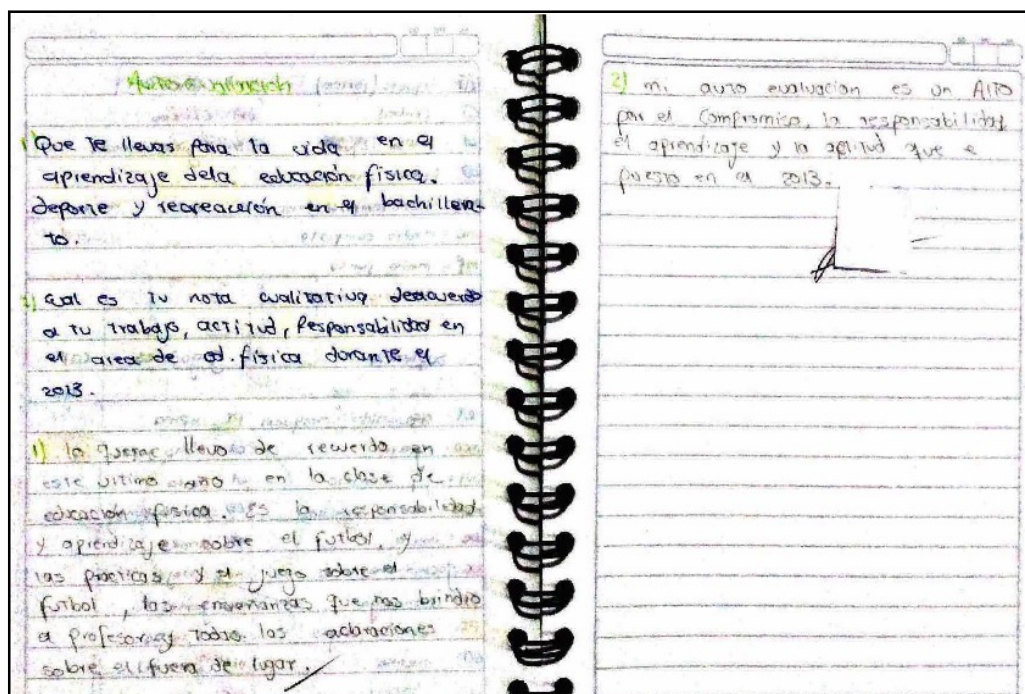 Auto evaluación
1) Que te llevas para la vida en el
aprendizaje dela educación física.
deporte y recreacción en el bachillera-
to.
2) Cual es tu nota cualitativa deacuerdo
a tu trabajo, actitud, Responsabilidad en
el area de ed. física durante el
2013.
1) lo llevo de recuerdo, en
este ultimo año en la clase de
educación física. Es la responsabilidad
y aprendizaje sobre el futbol, y
las practicas y el juego sobre el
futbol, las enseñanzas que nos brindo
el profesor y todas las aclaraciones
sobre el fuera de lugar.
2) mi auto evaluacion es un Alto
por el compromiso, la responsabilidad
el aprendizaje y la aptitud que e
puesto en el 2013.